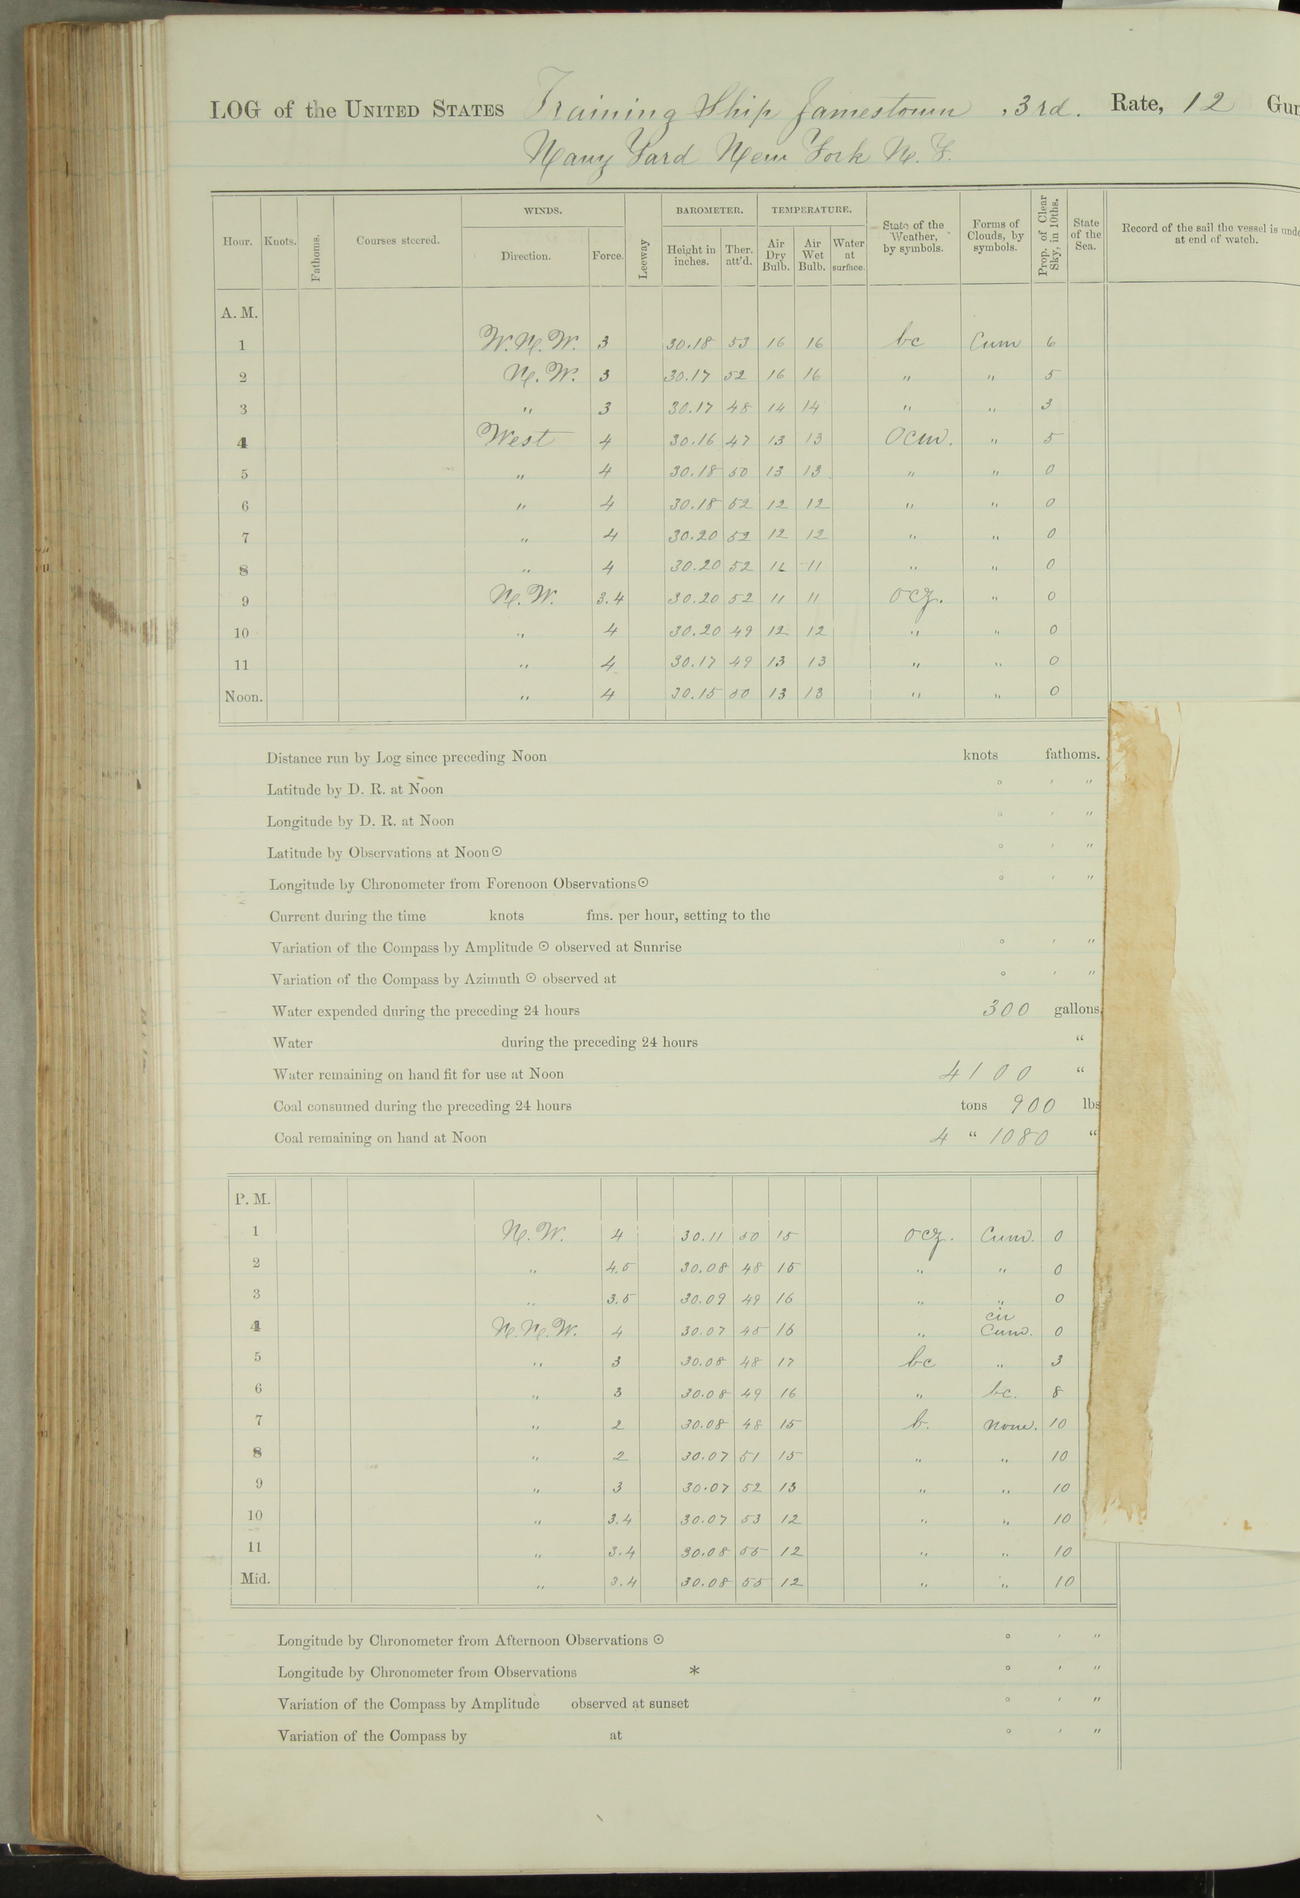 LOG of the UNITED STATES Training Ship Jamestown, 3rd. Rate, 12 Gun
Navy Yard New York N.Y.
WINDS. BAROMETER. TEMPERATURE.
Hour. Knots. Fathoms. Courses steered. Direction. Force. Leeway Height in inches. Ther. att'd. Air Dry Bulb. Air Wet Bulb. Water at surface. State of the Weather, by symbols. Forms of Clouds, by symbols. Prop. of Clear Sky, in 10ths. State of the Sea. Record of the sail the vessel is unde at end of watch.
A. M.
1 W.N.W. 3 30.18 53 16 16 bc Cum 6
2 N.W. 3 30.17 52 16 16 " " 5
3 " 3 30.17 48 14 14 " " 3
4 West 4 30.16 47 13 13 Ocm. " 5
5 " 4 30.18 50 13 13 " " 0
6 " 4 30.18 52 12 12 " " 0
7 " 4 30.20 52 12 12 " " 0
8 " 4 30.20 52 11 11 " " 0
9 N.W. 3.4 30.20 52 11 11 ocg. " 0
10 " 4 30.20 49 12 12 " " 0
11 " 4 30.17 49 13 13 " " 0
Noon. " 4 30.15 50 13 13 " " 0
Distance run by Log since preceding Noon knots fathoms.
Latitude by D. R. at Noon ° ' "
Longitude by D. R. at Noon ° ' "
Latitude by Observations at Noon ☉ ° ' "
Longitude by Chronometer from Forenoon Observations ☉ ° ' "
Current during the time knots fms. per hour, setting to the
Variation of the Compass by Amplitude ☉ observed at Sunrise ° ' "
Variation of the Compass by Azimuth ☉ observed at ° ' "
Water expended during the preceding 24 hours 300 gallons,
Water during the preceding 24 hours "
Water remaining on hand fit for use at Noon 4100 "
Coal consumed during the preceding 24 hours tons 900 lbs
Coal remaining on hand at Noon 4 " 1080 "
P. M.
1 N.W. 4 30.11 50 15 ocg. Cum. 0
2 " 4.5 30.08 48 15 " " 0
3 " 3.5 30.09 49 16 " " 0
4 N.N.W. 4 30.07 45 16 " cir Cum. 0
5 " 3 30.08 48 17 bc " 3
6 " 3 30.08 49 16 " bc. 8
7 " 2 30.08 48 15 b. none. 10
8 " 2 30.07 51 15 " " 10
9 " 3 30.07 52 13 " " 10
10 " 3.4 30.07 53 12 " " 10
11 " 3.4 30.08 55 12 " " 10
Mid. " 3.4 30.08 55 12 " " 10
Longitude by Chronometer from Afternoon Observations ☉ ° ' "
Longitude by Chronometer from Observations * ° ' "
Variation of the Compass by Amplitude observed at sunset ° ' "
Variation of the Compass by at ° ' "